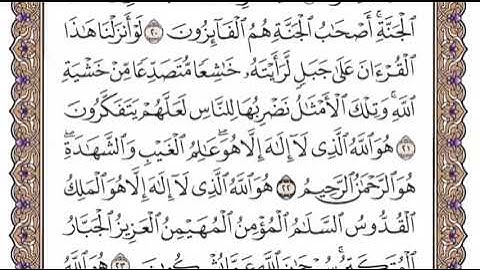 ٱلْجَنَّةِ ۚ أَصْحَٰبُ ٱلْجَنَّةِ هُمُ ٱلْفَآئِزُونَ ٢٠ لَوْ أَنزَلْنَا هَٰذَا
ٱلْقُرْءَانَ عَلَىٰ جَبَلٍ لَّرَأَيْتَهُۥ خَٰشِعًا مُّتَصَدِّعًا مِّنْ خَشْيَةِ
ٱللَّهِ ۚ وَتِلْكَ ٱلْأَمْثَٰلُ نَضْرِبُهَا لِلنَّاسِ لَعَلَّهُمْ يَتَفَكَّرُونَ
٢١ هُوَ ٱللَّهُ ٱلَّذِى لَآ إِلَٰهَ إِلَّا هُوَ ۖ عَٰلِمُ ٱلْغَيْبِ وَٱلشَّهَٰدَةِ ۖ
هُوَ ٱلرَّحْمَٰنُ ٱلرَّحِيمُ ٢٢ هُوَ ٱللَّهُ ٱلَّذِى لَآ إِلَٰهَ إِلَّا هُوَ ٱلْمَلِكُ
ٱلْقُدُّوسُ ٱلسَّلَٰمُ ٱلْمُؤْمِنُ ٱلْمُهَيْمِنُ ٱلْعَزِيزُ ٱلْجَبَّارُ
ٱلْمُتَكَبِّرُ ۚ سُبْحَٰنَ ٱللَّهِ عَمَّا يُشْرِكُونَ ٢٣ هُوَ ٱللَّهُ